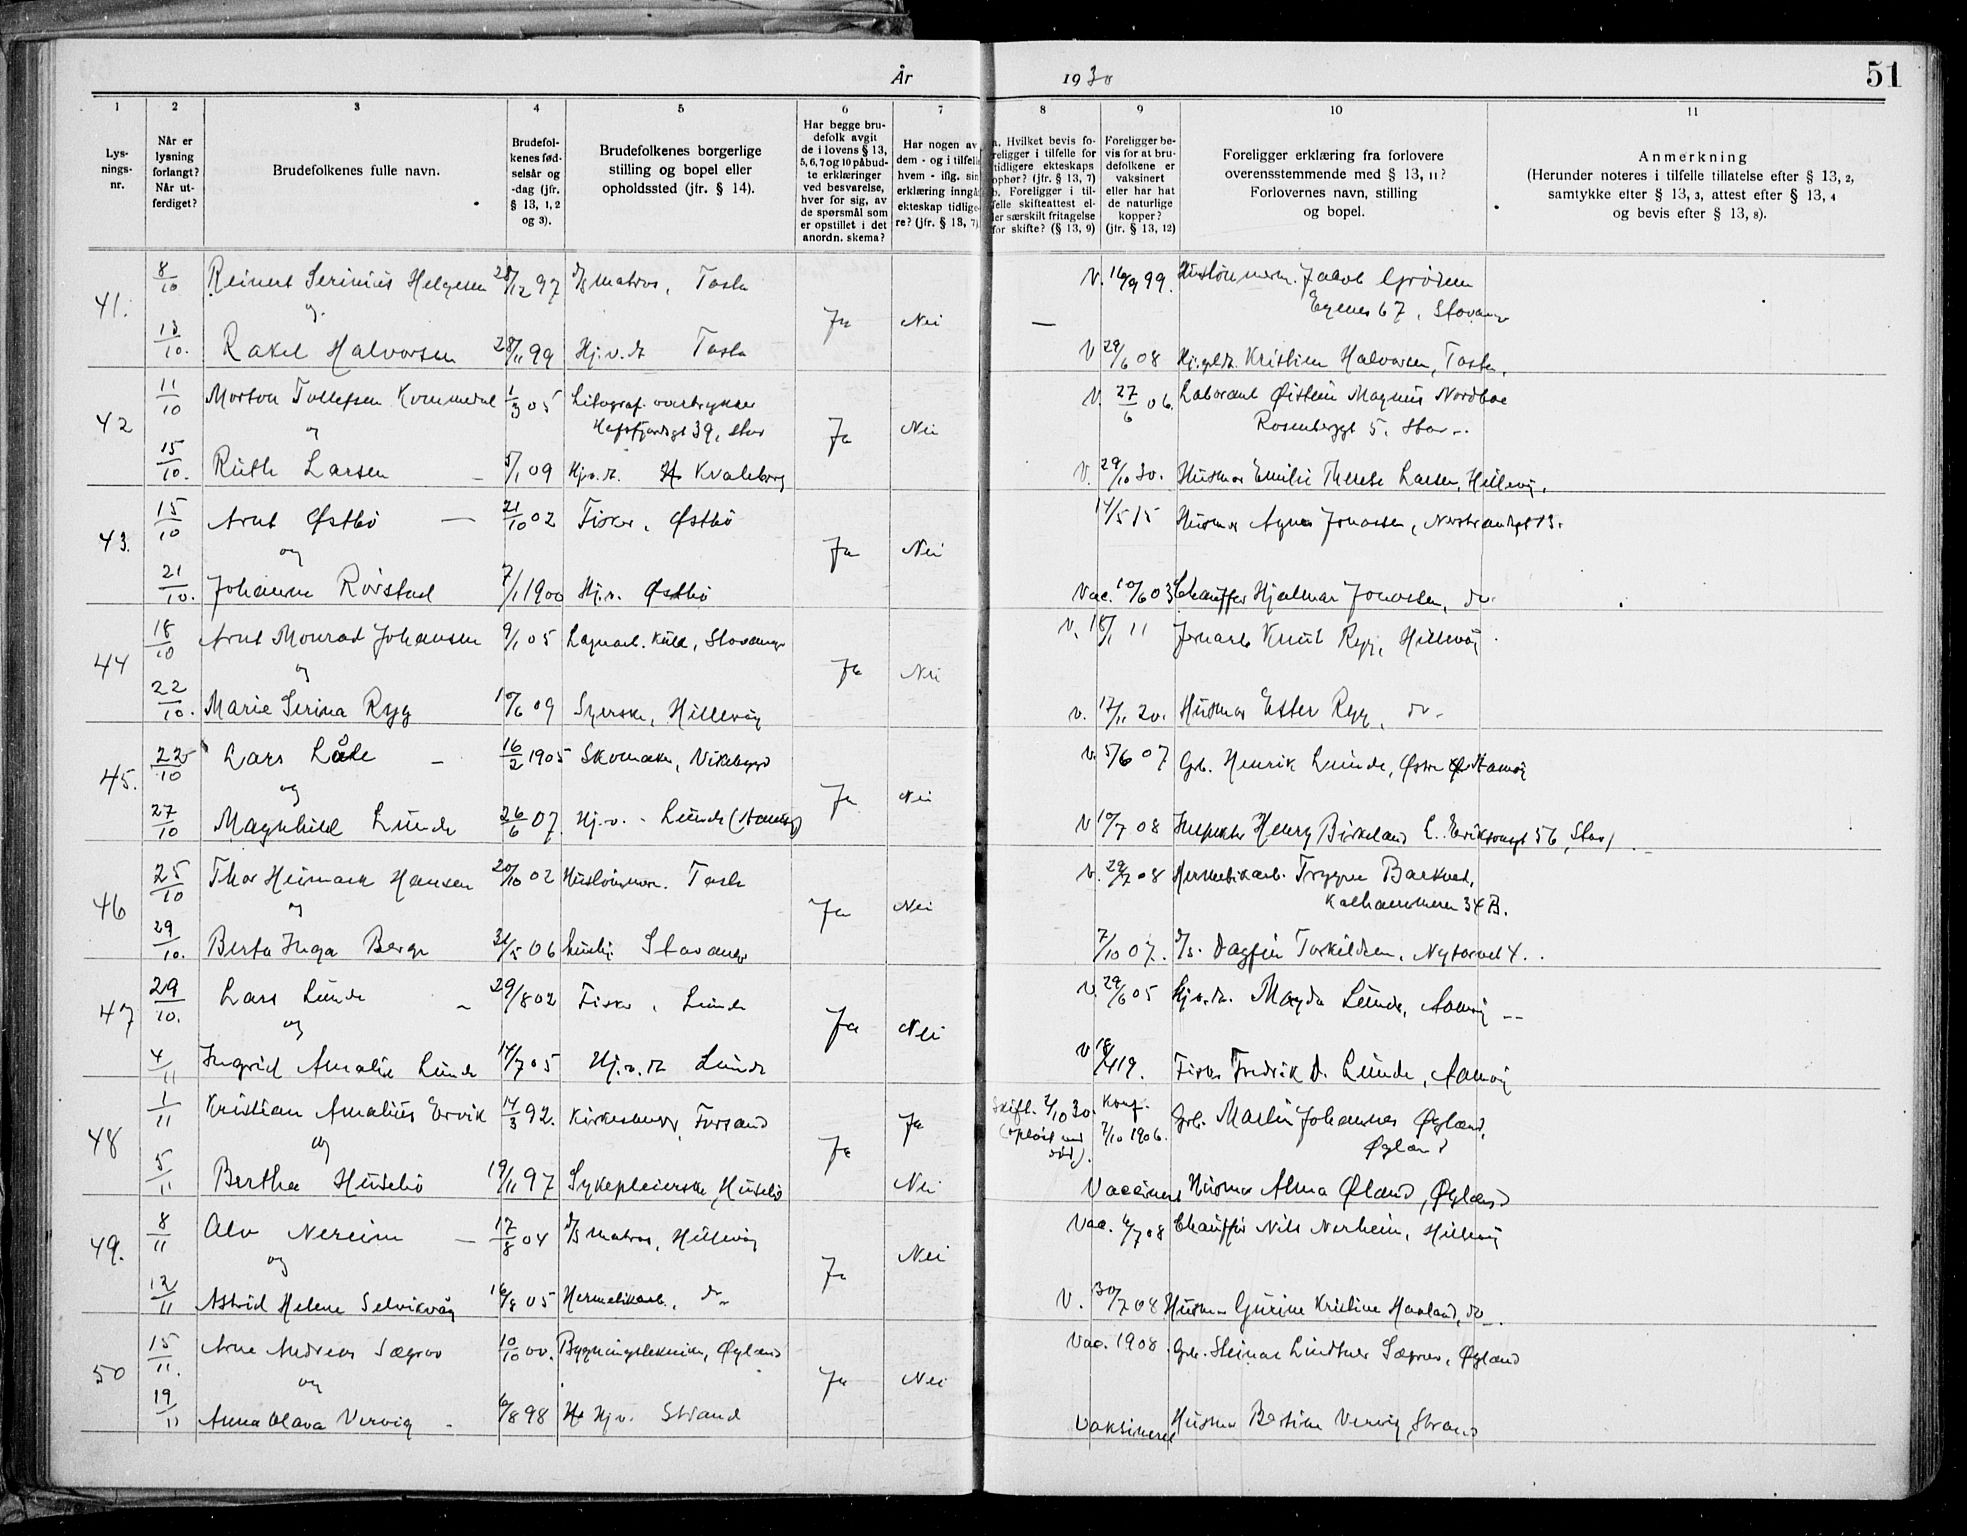 År 1930 51
1 2 3 4 5 6 7 8 9 10 11
Lys-
nings-
nr.
Når er
lysning
forlangt?
Når ut-
ferdiget?
Brudefolkenes fulle navn.
Brudefol-
kenes fød-
selsår og
-dag (jfr.
§ 13, 1, 2
og 3).
Brudefolkenes borgerlige
stilling og bopel eller
opholdssted (jfr. § 14).
Har begge bru-
defolk avgit
de i lovens § 13,
5, 6, 7 og 10 påbud-
te erklæringer
ved besvarelse,
hver for sig, av
de spørsmål som
er opstillet i det
anordn. skema?
Har nogen av
dem - og i tilfelle
hvem - iflg. sin
erklæring inngåt
ekteskap tidlige-
re? (jfr. § 13, 7)
a. Hvilket bevis fo-
religger i tilfelle for
tidligere ekteskaps
ophør? (jfr. § 13, 7)
b. Foreligger i til-
felle skifteattest el-
ler særskilt fritagelse
for skifte? (§ 13, 9)
Foreligger be-
vis for at bru-
defolkene er
vaksinert
eller har hat
de naturlige
kopper?
(jfr. § 13, 12)
Foreligger erklæring fra forlovere
overensstemmende med § 13, 11?
Forlovernes navn, stilling
og bopel.
Anmerkning
(Herunder noteres i tilfelle tillatelse efter § 13, 2,
samtykke efter § 13, 3, attest efter § 13, 4
og bevis efter § 13, 8).
41. 8/10 Reinert Serinius Helgesen 28/12 97 d/s matros, Tasta V. 16/9 99. Jakob Grødem
og Ja Nei — Egenes 67, Stavanger
13/10. Rakel Halvorsen 28/11 99 Hj.v.dt Tasta V 29/6 08 Kristian Halvorsen, Tasta.
42 11/10 Morton Tollefsen Kommedal 1/3 05 Litograf. V. 27/6 06. Laborant Øistein Magnus Nordboe
og Hafrsfjordgt 39, Stav Ja Nei Rosenberggt 5. Stav.
15/10. Ruth Larsen 5/1 09 Hj.v.dt. Kvaleberg V. 29/10 30. Husmor Emilie Therese Larsen, Hillevåg.
43. 15/10 Arnt Østbö — 21/10 02 Fisker, Østbö 14/5 15 Husmor Agnes Jonassen, 13.
og Ja Nei
21/10. Johanne Rörstad 7/1 1900 Hj.v. Østbö Vac. 10/6 03 Chauffør Hjalmar Jonassen, do.
44 18/10 Arnt Monrad Johansen 9/1 05 Lagerarb. Stavanger V. 18/1 11 Jernarb Knut Ryg, Hillevåg.
og Ja Nei
22/10. Marie Serina Ryg 10/6 09 Syerske, Hillevåg V. 17/11 20. Husmor Ester Ryg, do.
45. 22/10 Lars Låde 16/2 1905 Skomaker, Vikebygd V. 5/6 07 Grb. Henrik Lunde, Østre Aamöy
og Ja Nei
27/10 Magnhild Lunde 26/6 07. Hj.v. - Lunde (Aamöy) V 10/7 08 Inspektør Henry Birkeland L. Eriksonsgt 56, Stav
46 25/10 Thor Heimark Hansen 20/10 02 Tasta V. 29/7 08 Hermetikarb. Trygve Barkved,
og Ja Nei Kalhammeren 34 B.
29/10. Berta Inga Berge 31/5 06 Stavanger 7/10 07. Dagfin Torkildsen, Nytorvet 4.
47 29/10. Lars Lunde 29/8 02 Fisker, Lunde V. 29/6 05 Hj.v.dt. Magda Lunde, Aamöy
og Ja Nei
4/11 Ingrid Amalie Lunde 14/7 05 Hj.v.dt Lunde V 18/4 19. Fisker Fredrik D. Lunde, Aamöy
48 1/11 Kristian Amalius Ervik 14/3 92. Kirkesanger, Forsand Ja Skift. 2/10 30. Konf. Grb. Martin Johannes Øgland,
og Ja (opløst ved død). 7/10 1906. Øgland
5/11 Bertha Husebö 19/11 97 Sykepleierske, Husebö Nei Vaccinert Husmor Alma Øland, Øgland
49. 8/11 Alv Nereim — 17/8 04 d/s matros, Hillevåg Vac. 6/7 08 Chauffør Nils Norheim, Hillevåg
og Ja Nei
12/11 Astrid Helene Selvikvåg 16/8 05 Hermetikarb., do V. 30/7 08 Husmor Gurine Kristine Havland, do.
50 15/11. Arne Andreas Sægrov 10/10 00. Bygningstekniker, Øgland Vac. 1908. Grb. Steinar Lindtner Sægrov, Øgland
og Ja Nei
19/11 Anna Olava Vervig 6/8 98 Hj.v. Strand Vaksineret Husmor Bertine Vervig, Strand